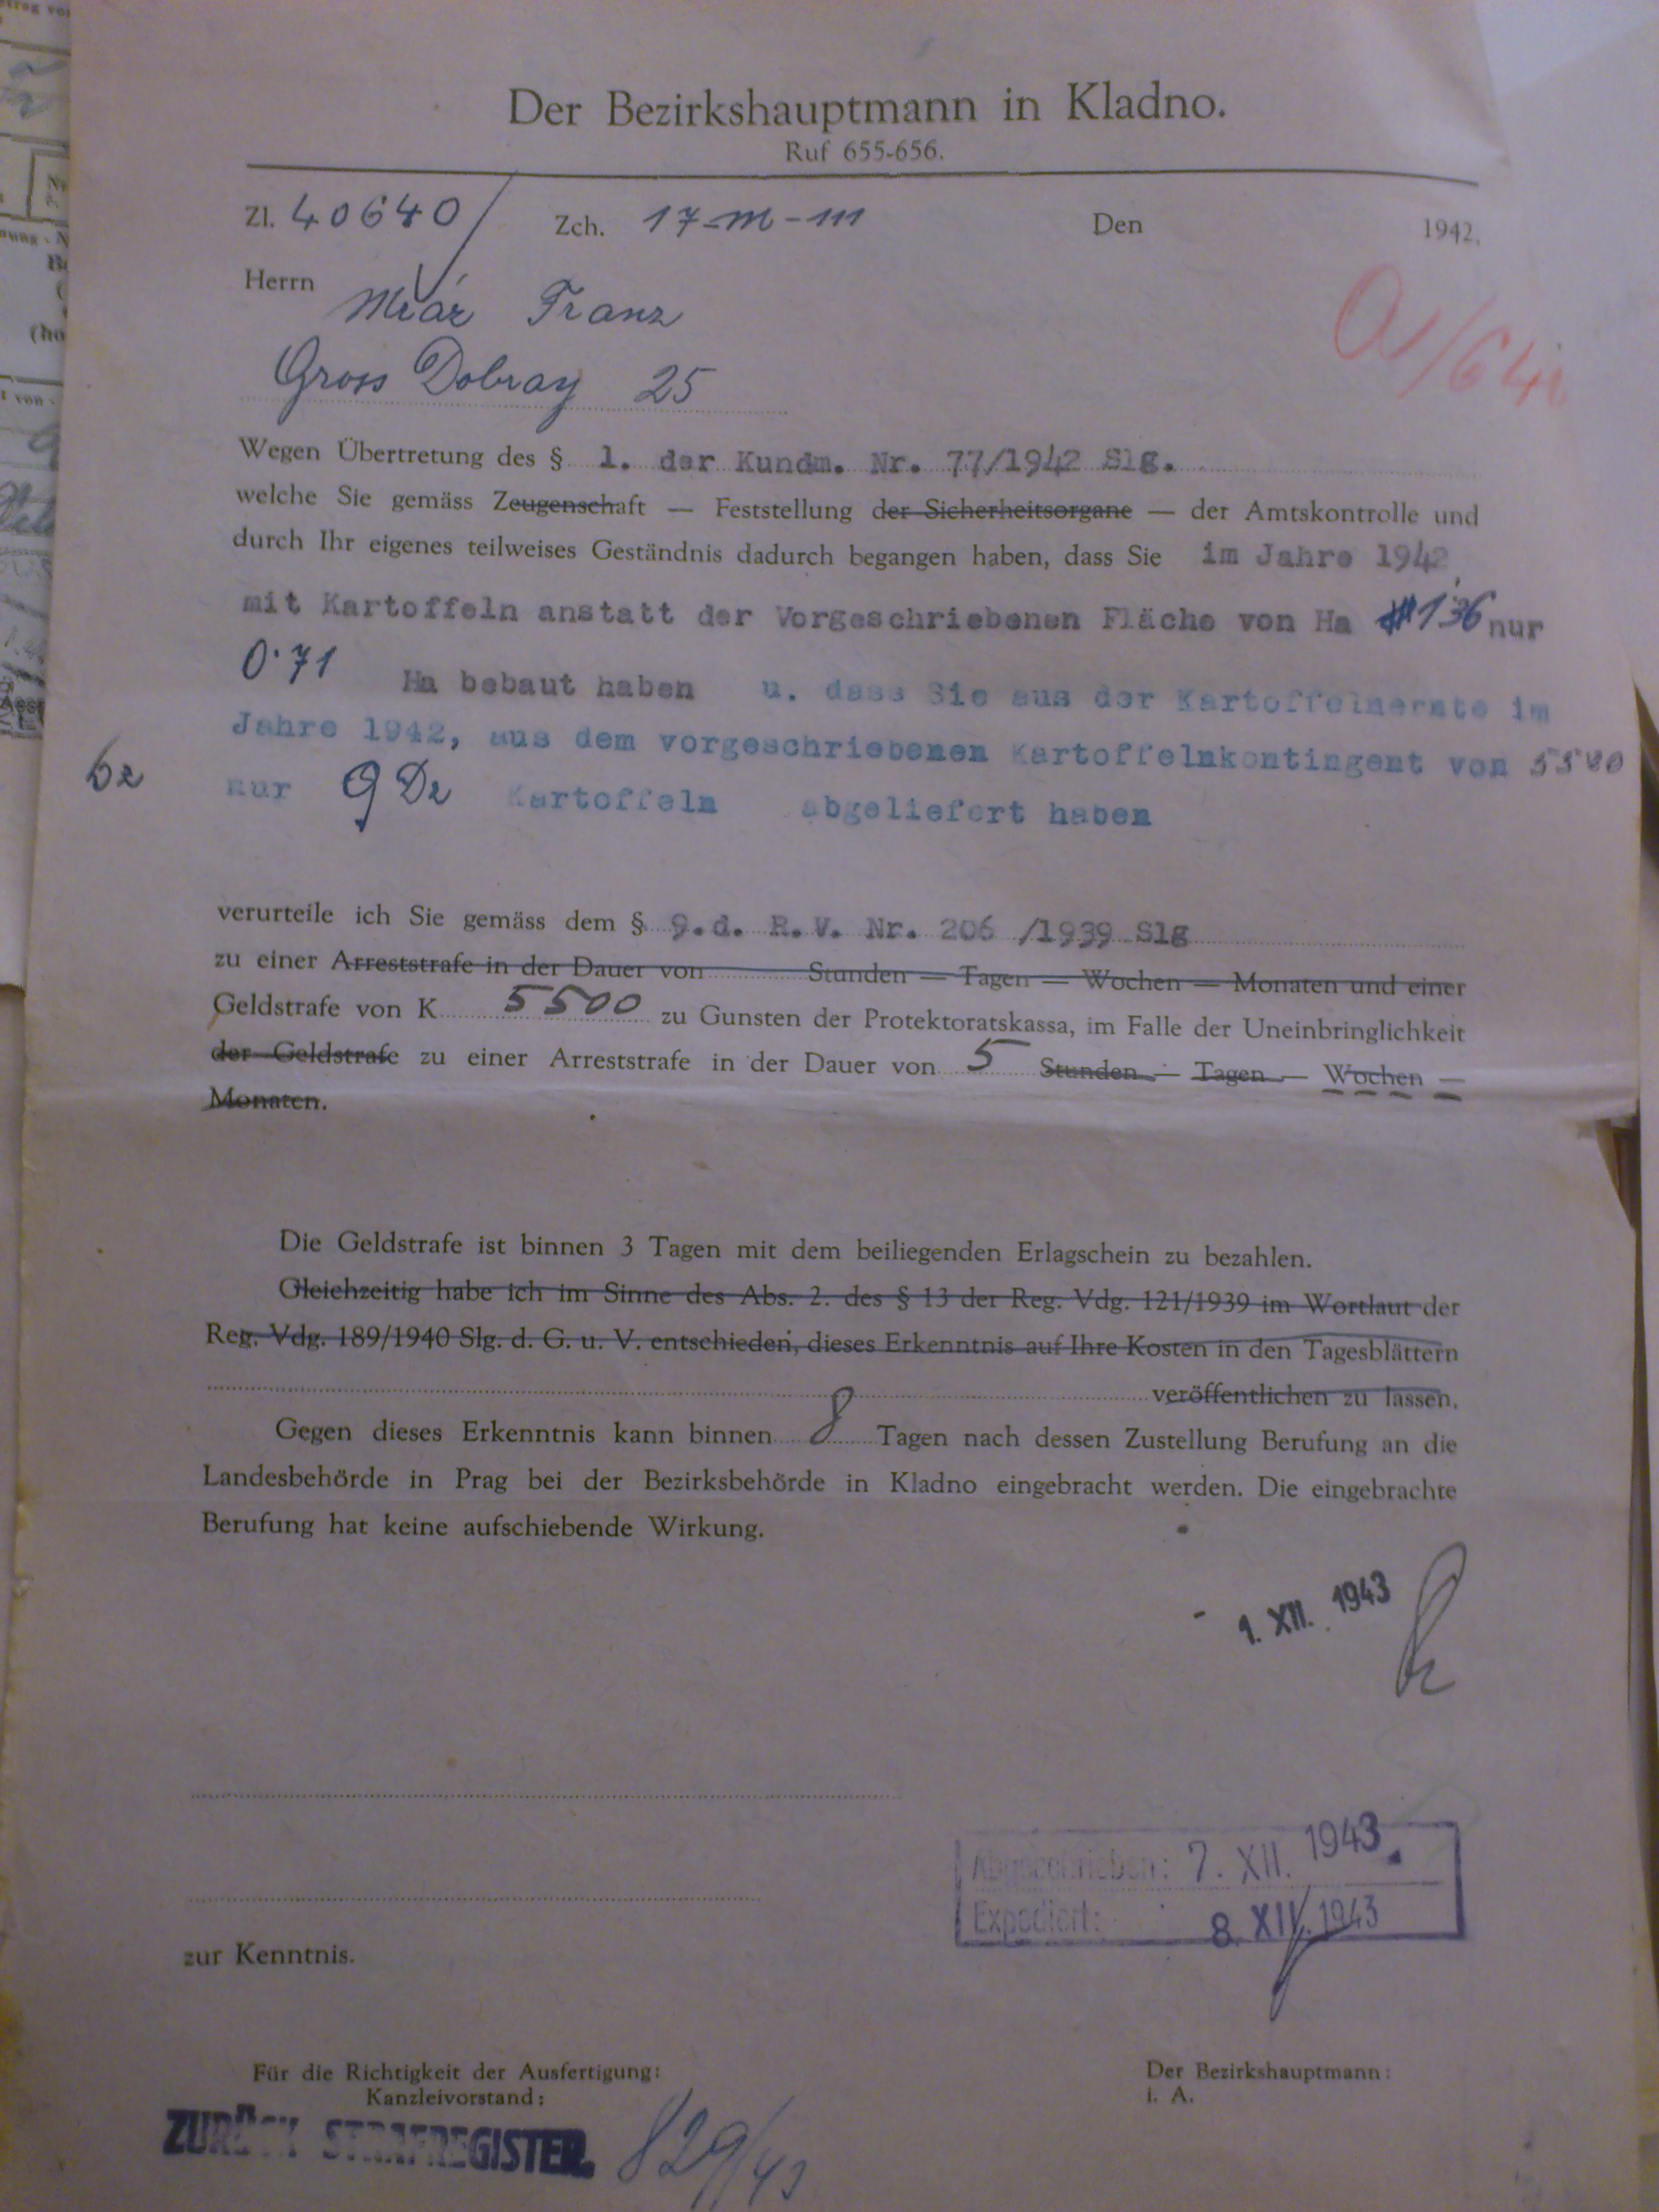 Der Bezirkshauptmann in Kladno.
Ruf 655-656.
Zl. 40640/ Zch. 17-m-m Den 1942.
Herrn Franz
Gross Dobray 25
Wegen Übertretung des § 1. der Kundm. Nr. 77/1942 Slg.
welche Sie gemäss Zeugenschaft — Feststellung der Sicherheitsorgane — der Amtskontrolle und
durch Ihr eigenes teilweises Geständnis dadurch begangen haben, dass Sie im Jahre 1942
mit Kartoffeln anstatt der Vorgeschriebenen Fläche von Ha 1.36 nur
0.71 Ha bebaut haben u. dass Sie aus der Kartoffelnernte im
Jahre 1942, aus dem vorgeschriebenen Kartoffelnkontingent von
nur 9 Kartoffeln abgeliefert haben
verurteile ich Sie gemäss dem § 9.d. R.V. Nr. 206 /1939 Slg
zu einer Arreststrafe in der Dauer von Stunden — Tagen — Wochen — Monaten und einer
Geldstrafe von K 5500 zu Gunsten der Protektoratskassa, im Falle der Uneinbringlichkeit
der Geldstrafe zu einer Arreststrafe in der Dauer von 5 Stunden — Tagen — Wochen —
Monaten.
Die Geldstrafe ist binnen 3 Tagen mit dem beiliegenden Erlagschein zu bezahlen.
Gleichzeitig habe ich im Sinne des Abs. 2. des § 13 der Reg. Vdg. 121/1939 im Wortlaut der
Reg. Vdg. 189/1940 Slg. d. G. u. V. entschieden, dieses Erkenntnis auf Ihre Kosten in den Tagesblättern
veröffentlichen zu lassen.
Gegen dieses Erkenntnis kann binnen 8 Tagen nach dessen Zustellung Berufung an die
Landesbehörde in Prag bei der Bezirksbehörde in Kladno eingebracht werden. Die eingebrachte
Berufung hat keine aufschiebende Wirkung.
- 1. XII. 1943
Abgeschrieben: 7. XII. 1943.
Expediert: 8. XII. 1943
zur Kenntnis.
Für die Richtigkeit der Ausfertigung: Der Bezirkshauptmann:
Kanzleivorstand: i. A.
ZURÜCK STRAFREGISTER. 829/43